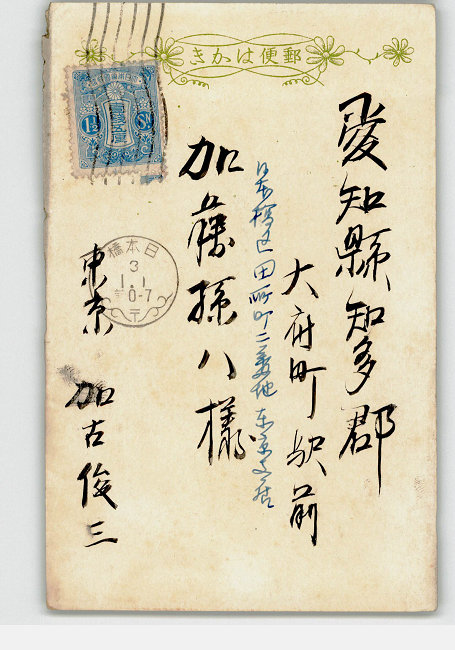 郵便はかき
愛知縣知多郡
大府町駅前
日本橋区田所町二番地 東京支店
加藤孫八様
東京 加古俊三
1½ Sn
日本橋
3
1.1
0-7